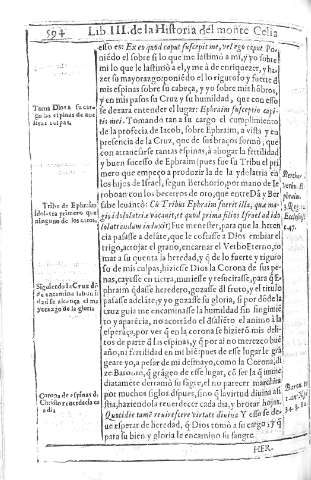 594 Lib. III. de la Historia del monte Celia
esso es: Ex eo quod caput suscepit me, vel ego caput Po-
niẽdo el sobre si lo que me lastimò a mi, y yo sobre
mi lo que le lastimò a el, y me à de enriquezer, y ha-
zer su mayorazgo: poniẽdo el lo riguroso y fuerte d
mis espinas sobre su cabeça, y yo sobre mis hõbros,
y en mis passos su Cruz y su humildad, que en esso
se darà a entender esse lugar: Ephraim susceptio capi-
tis mei. Tomando tan a su cargo el cumplimiento
de la profecia de Iacob, sobre Ephraim, a vista y en
presencia de la Cruz, que de sus braços formò, que
con arrancarse tantas espinas, à ahogar la fertilidad
y buen successo de Ephraim (pues fue su Tribu el pri
mero que empeçò a produzir la de la ydolatria en
los hijos de Israel, segun Berchorio, por mano de Ie
roboan con los becerros de oro, que entre Dã y Ber
sabe leuantò: Cũ Tribus Ephraim fuerit illa, quæ ma-
gis idololatriæ vacauit, et quod prima filios Israel ad ido
lolatrandum induxit) Fue menester, para que la heren
cia passasse a delãte, que le costasse a Dios embiar el
trigo, actojar el grano, encarnar el Verbo Eterno, to
mar a su quenta la heredad, y q̃ de lo fuerte y riguro
so de mis culpas, hiziesse Dios la Corona de sus pe-
nas, cayesse en tierra, muriesse y resuscitasse, para q̃ E-
phraim q̃dasse heredero, gozasse dl fruto, y el titulo
passasse adelãte, y yo gozasse su gloria, si por dõde la
cruz guia me encaminasse la humildad sin fingimiẽ
to y aparẽcia, no acortãdo el dsaliẽto el animo à la
esperãça, por ver q̃ en la corona se hizierõ mis deli-
tos de parte d las espinas, y q̃ por aì no merezco bue
año, ni fertilidad en mi biẽ: pues de esse lugar le grã
geare yo, a pesar de mi desmayo, como la Corona, di
ze que q̃ grãgeo de esse lugar, cõ ser la q̃ inme
diatamẽte derramò su sãgre, el no parecer marchita
por muchos siglos dspues, sino q̃ la virtud diuina as-
sista, haziẽdola reuerdecer cada dia, y brotar hojas.
Quotidie tamẽ reuirescere virtute diuina Y esso se de-
ue esperar de heredad, q̃ Dios tomò a su cargo: y q̃
para su bien y gloria le encamino su sangre.
HER-
Toma Dios a su car-
go las espinas de nue
stras culpas.
Tribu de Ephraim
idolatra primero que
ninguno de los otros.
Siguiendo la Cruz dõ
de encamina la humi
dad se alcança el ma
yorazgo de la gloria
Corona de espinas d
Christo reuerdecia ca
da dia
Bercher.
verb. E-
phraim.
3. Reg. 12.
Ecclesia.
c. 47.